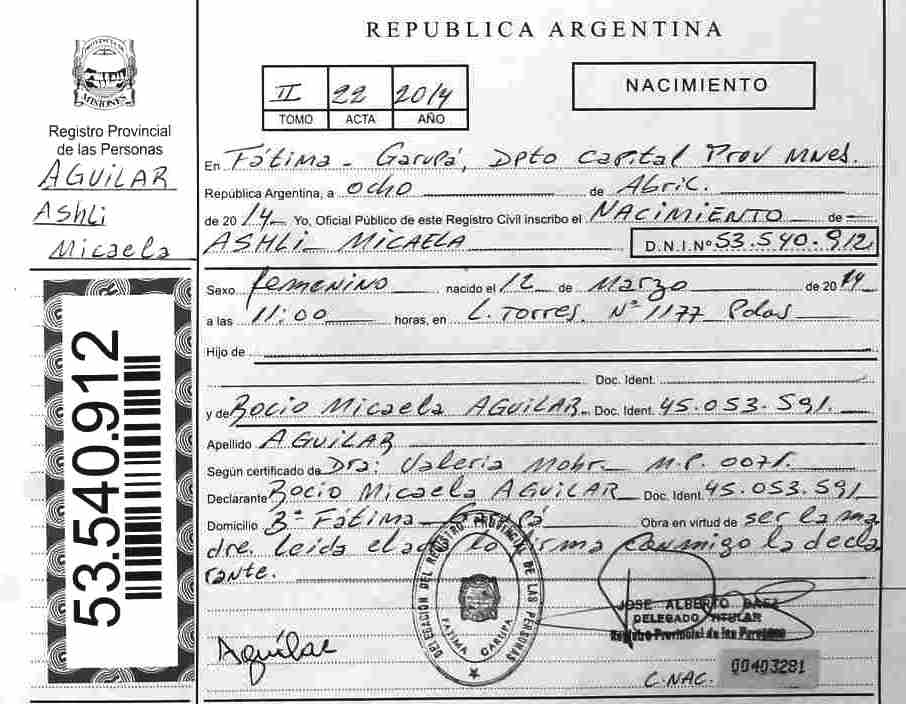 REPUBLICA ARGENTINA
PROVINCIA DE
MISIONES
Registro Provincial
de las Personas
AGUILAR
Ashli
Micaela
53.540.912
II 22 2014
TOMO ACTA AÑO
NACIMIENTO
En Fátima - Garupá, Dpto Capital Prov Mnes.
República Argentina, a ocho de Abril.
de 2014 Yo, Oficial Público de este Registro Civil inscribo el NACIMIENTO de
ASHLI MICAELA D.N.I.Nº 53.540.912
Sexo femenino nacido el 12 de Marzo de 2014
a las 11:00 horas, en L. Torres Nº 1177 Pdas
Hijo de
Doc. Ident.
y de Rocio Micaela AGUILAR Doc. Ident. 45.053.591.
Apellido AGUILAR
Según certificado de Dra: Valeria Mohr M.P. 
Declarante Rocio Micaela AGUILAR Doc. Ident. 45.053.591
Domicilio Bº Fátima - Garupá Obra en virtud de ser la ma
dre. Leida el acta la firma conmigo la decla
rante.
DELEGACION DEL REGISTRO PROVINCIAL DE LAS PERSONAS
FATIMA GARUPA
JOSE ALBERTO
DELEGADO TITULAR
Registro Provincial de las Personas
Aguilar
C.NAC. 00403281